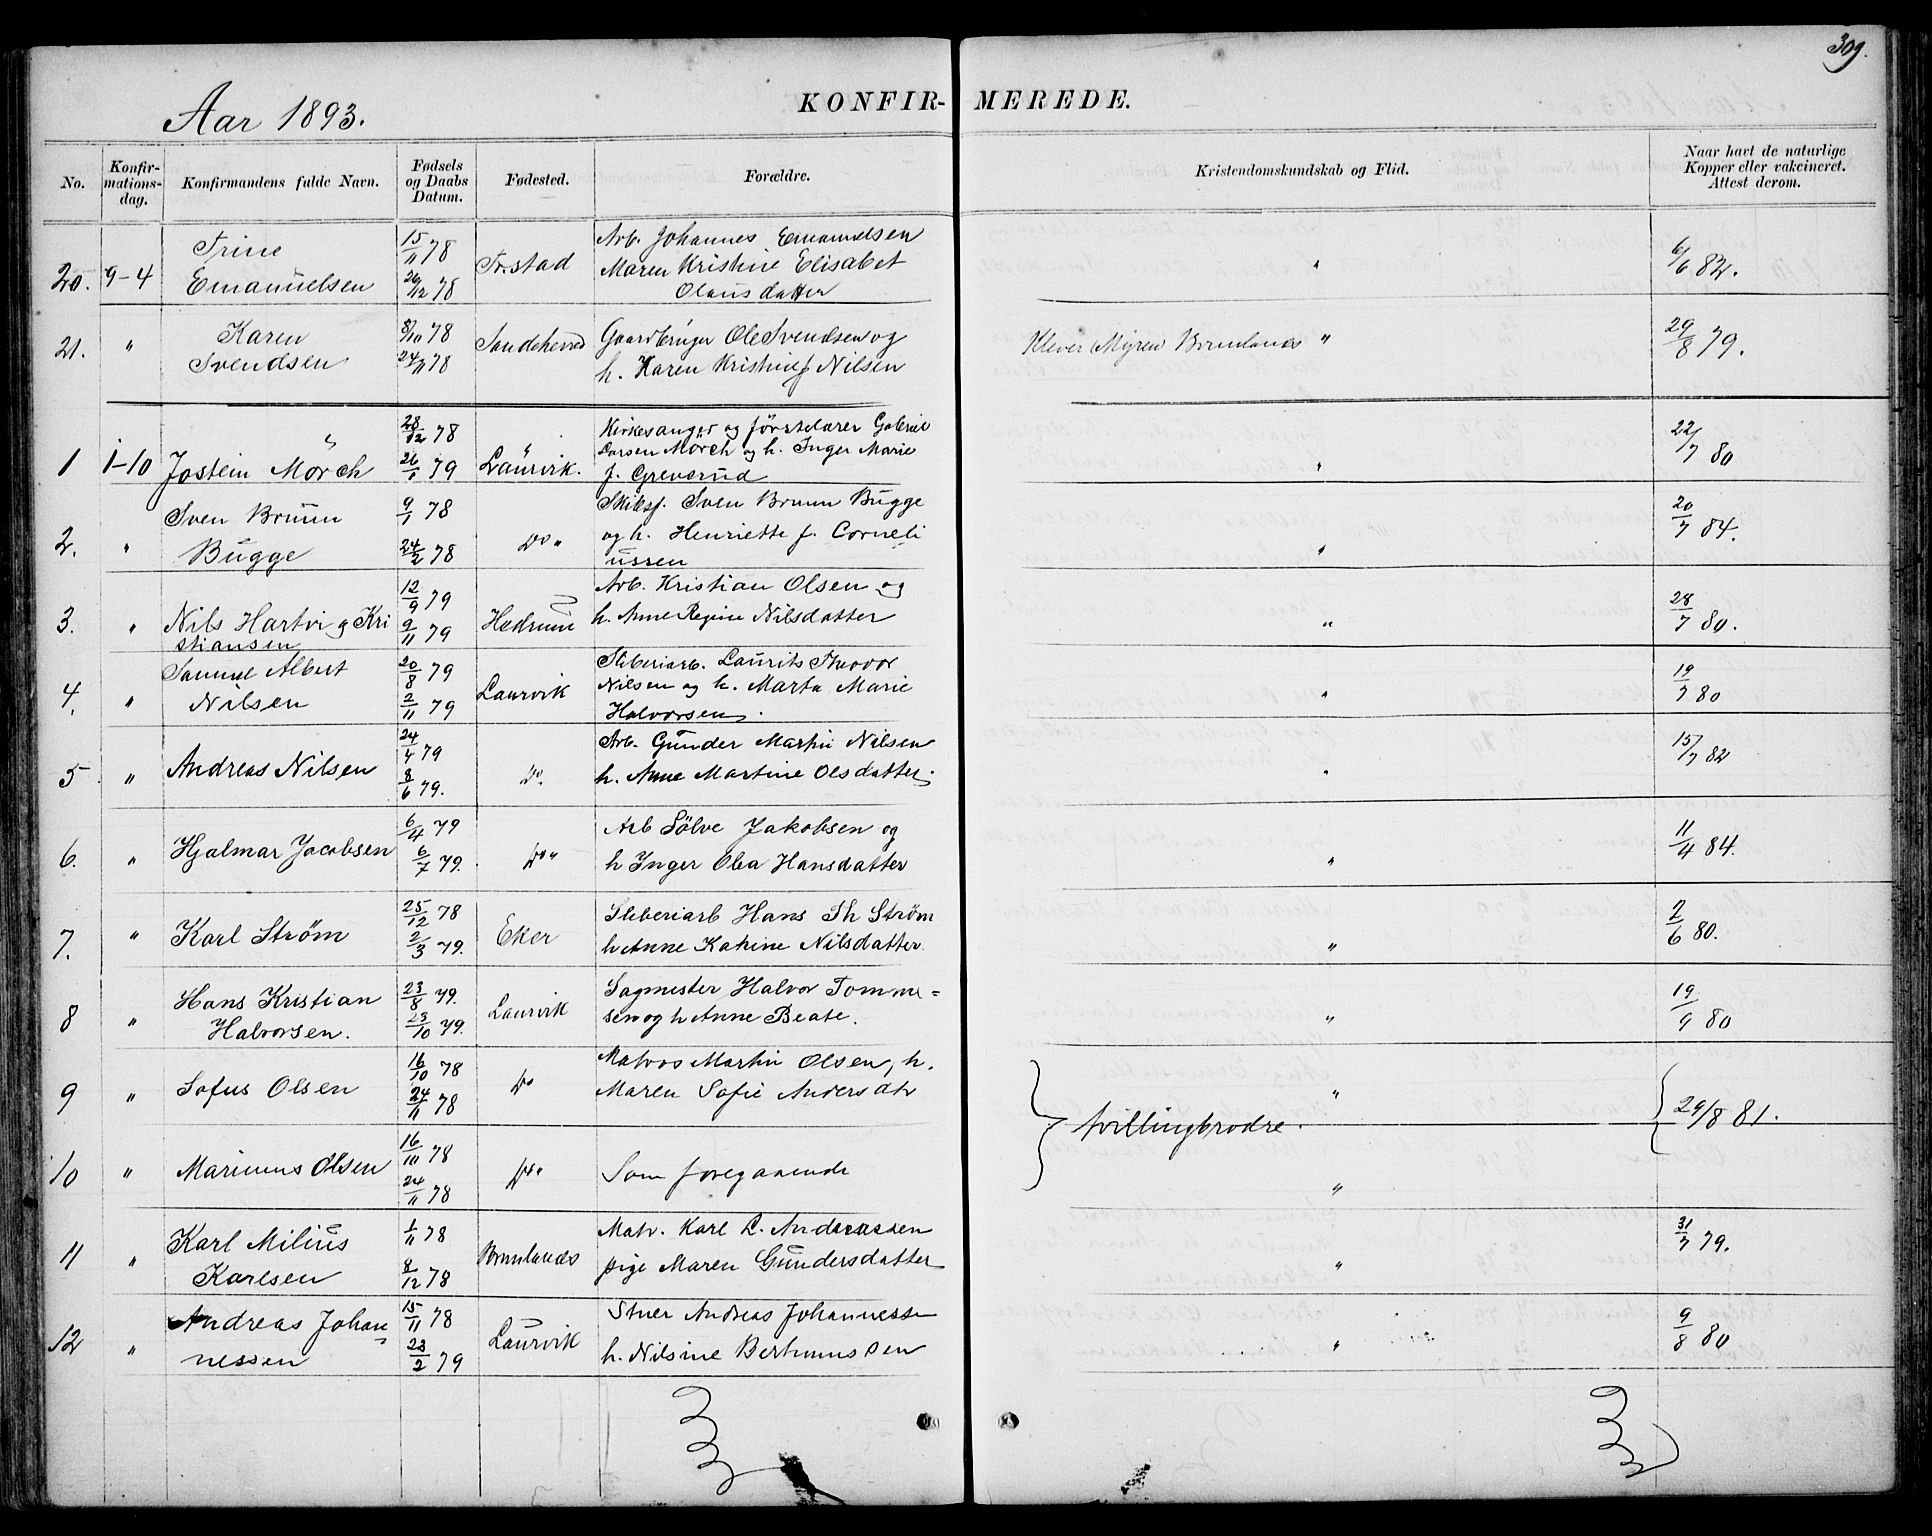 309.
Aar 1893.
KONFIR- MEREDE.
No. Konfirmationsdag. Konfirmandens fulde Navn. Fødsels og Daabs Datum. Fødested. Forældre. Kristendomskundskab og Flid. Naar havt de naturlige Kopper eller vakcineret. Attest derom.
Trine 15/11 78 Arb. Johannes Emanuelsen
20. 9-4 Emanuelsen 26/12 78 Maren Kristine Elisabet " 6/6 82.
Olausdatter
Karen 8/10 78 Sandeherred Gaardbruger Ole Svendsen og Klever Myren Brunlanæs " 29/8 79.
21. " Svendsen 24/11 78 h. Karen Kristine f Nilsen
28/12 78 Kirkesanger og førstelærer Gabriel
1 1-10 Jostein Mörch 26/1 79 Laurvik. Larsen Mörch og h. Inger Marie " 22/7 80
f. Greverud
Sven Bruun 9/1 78 Skibsf. Sven Bruun Bugge
2. " Bugge 24/2 78 Do " og h. Henriette f. Corneli " 20/7 84.
ussen
12/9 79 Arb. Kristian Olsen og
3. " Nils Hartvig Kri 9/11 79 Hedrum h. Anne Regine Nilsdatter " 28/7 80.
stiansen
Samuel Albert 20/8 79 Støberiarb. Laurits Theodor
4. " Nilsen 2/11 79 Laurvik Nilsen og h. Marta Marie " 19/7 80
Halvorsen.
24/4 79 Arb. Gunder Martin Nilsen
5 " Andreas Nilsen 8/6 79. Do. h. Anne Martine Olsdatter. " 15/7 82
6/4 79 Arb Sölve Jakobsen og
6. " Hjalmar Jacobsen 6/7 79. Do " h Inger Olea Hansdatter " 11/4 84.
25/12 78 Støberiarb Hans Th Strøm
7. " Karl Strøm 2/3 79. Eker h Anne Katrine Nilsdatter. " 2/6 80.
Hans Kristian 23/8 79. Sagmester Halvor Tomme=
8 " Halvorsen. 23/10 79. Laurvik sen og h Anne Beate. " 19/9 80
16/10 78 Matros Martin Olsen, h.
9 " Sofus Olsen 24/11 78 Do Maren Sofie Andersdtr "
tvillingbrødre. 29/8 81.
16/10 78
10 " Marinius Olsen 24/11 78 Do " Som foregaaende "
1/11 78 Matr. Karl L. Anderassen
11 " Karl Milius 8/12 78 Brunlanæs pige Maren Gundersdatter " 31/7 79.
Karlsen
Andreas Johan 15/11 78 Andreas Johannessen
12 " nessen 23/2 79 Laurvik h. Nilsine Bertinussen " 9/8 80